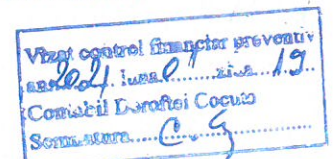 Vizat control financiar preventiv
anul 2021 luna 0 ziua 19
Contabil Doroftei Cocuta
Semnatura